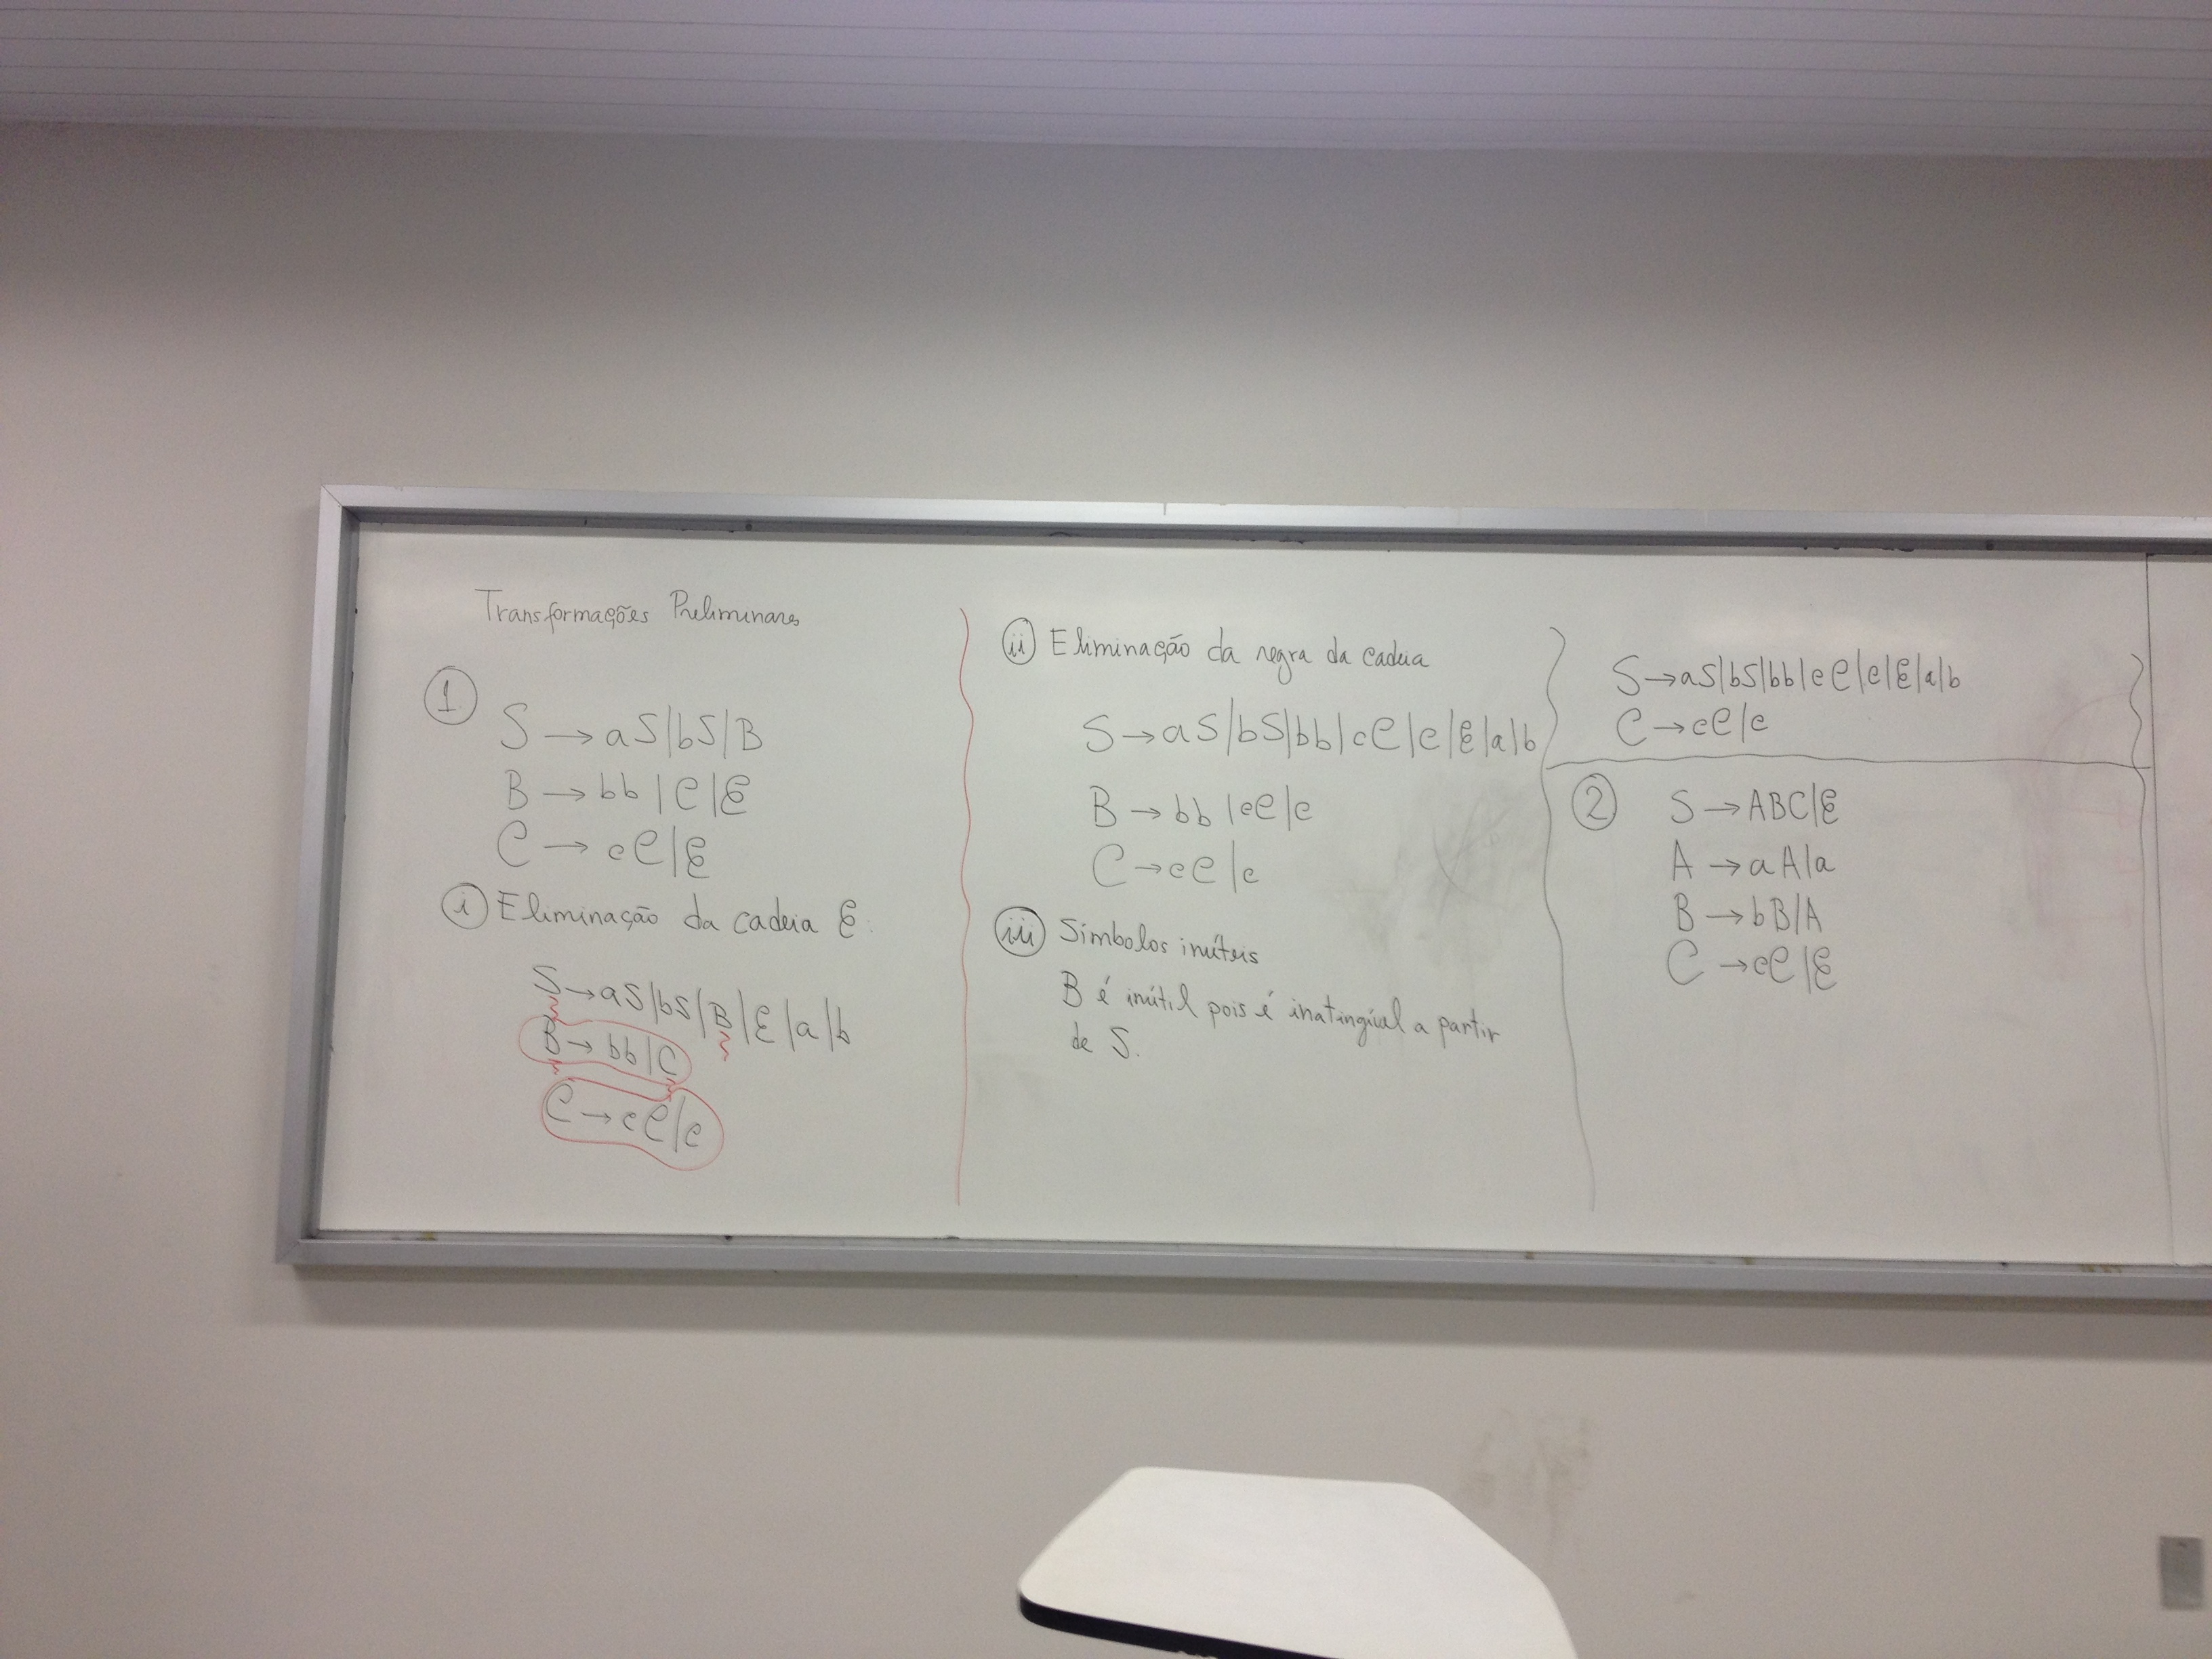 Transformações Preliminares
1
S → aS|bS|B
B → bb|C|ε
C → cC|ε
i Eliminação da cadeia ε.
S → aS|bS|B|ε|a|b
B → bb|C
C → cC|c
ii Eliminação da regra da cadeia
S → aS|bS|bb|cC|c|ε|a|b
B → bb|cC|c
C → cC|c
iii Símbolos inúteis
B é inútil pois é inatingível a partir
de S.
S → aS|bS|bb|cC|c|ε|a|b
C → cC|c
2 S → ABC|ε
A → aA|a
B → bB|A
C → cC|ε